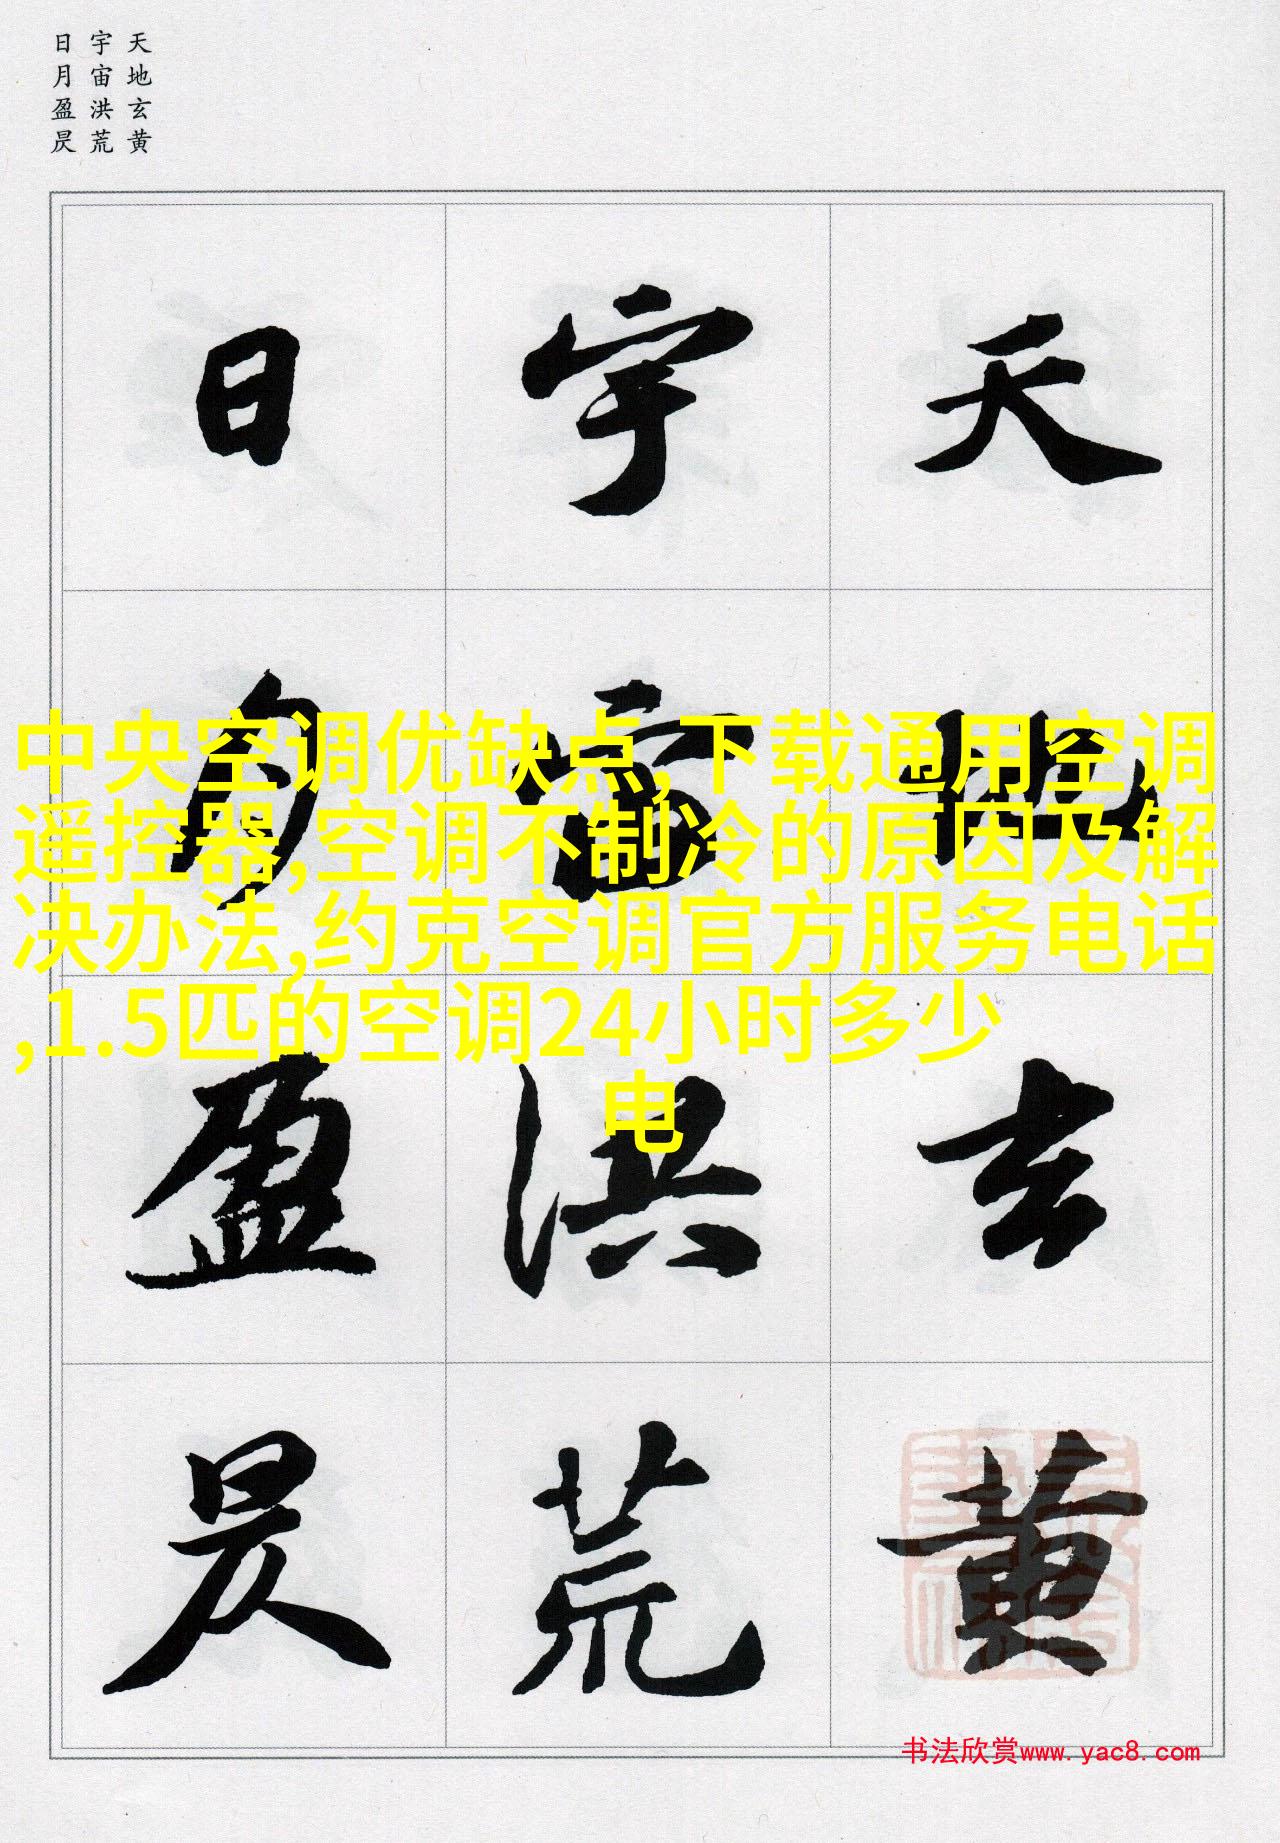 天地玄黄
宇宙洪荒
日月盈昃
天地玄黄
宇宙洪荒
日月盈昃
中央空调优缺点,下载通用空调
遥控器,空调不制冷的原因及解
决办法,约克空调官方服务电话
,1.5匹的空调24小时多少
电
书法欣赏www.yac8.com